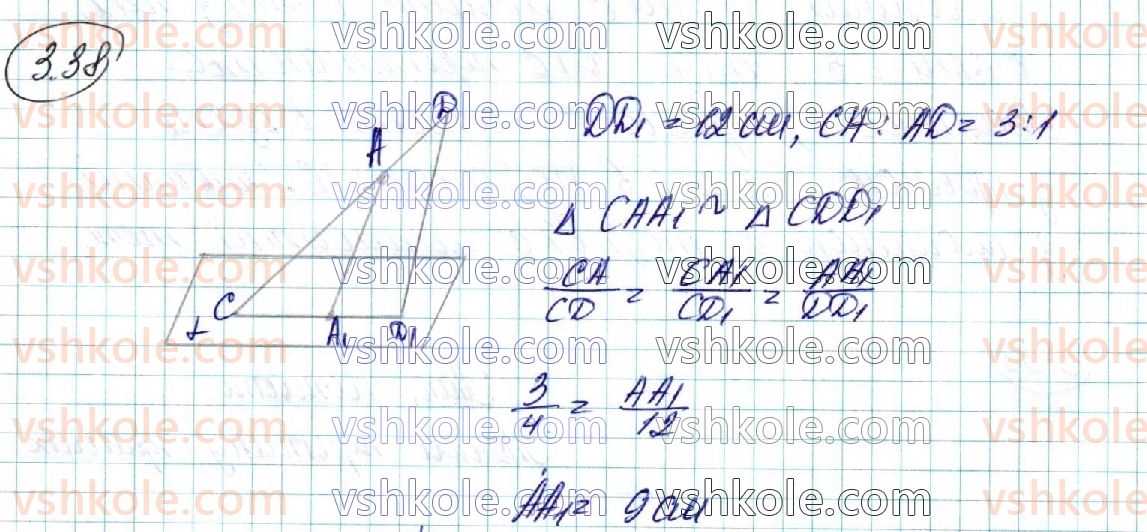 3.38
D
A
C
A₁ D₁
α
DD₁ = 12 см, CA : AD = 3:1
Δ CAA₁ ~ Δ CDD₁
CA/CD = CA₁/CD₁ = AA₁/DD₁
3/4 = AA₁/12
AA₁ = 9 см
vshkole.com vshkole.com vshkole.com vshkole.com
vshkole.com vshkole.com vshkole.com vshkole.com
vshkole.com vshkole.com vshkole.com vshkole.com
vshkole.com vshkole.com vshkole.com vshkole.com
vshkole.com vshkole.com vshkole.com vshkole.com
vshkole.com vshkole.com vshkole.com vshkole.com
vshkole.com vshkole.com vshkole.com vshkole.com